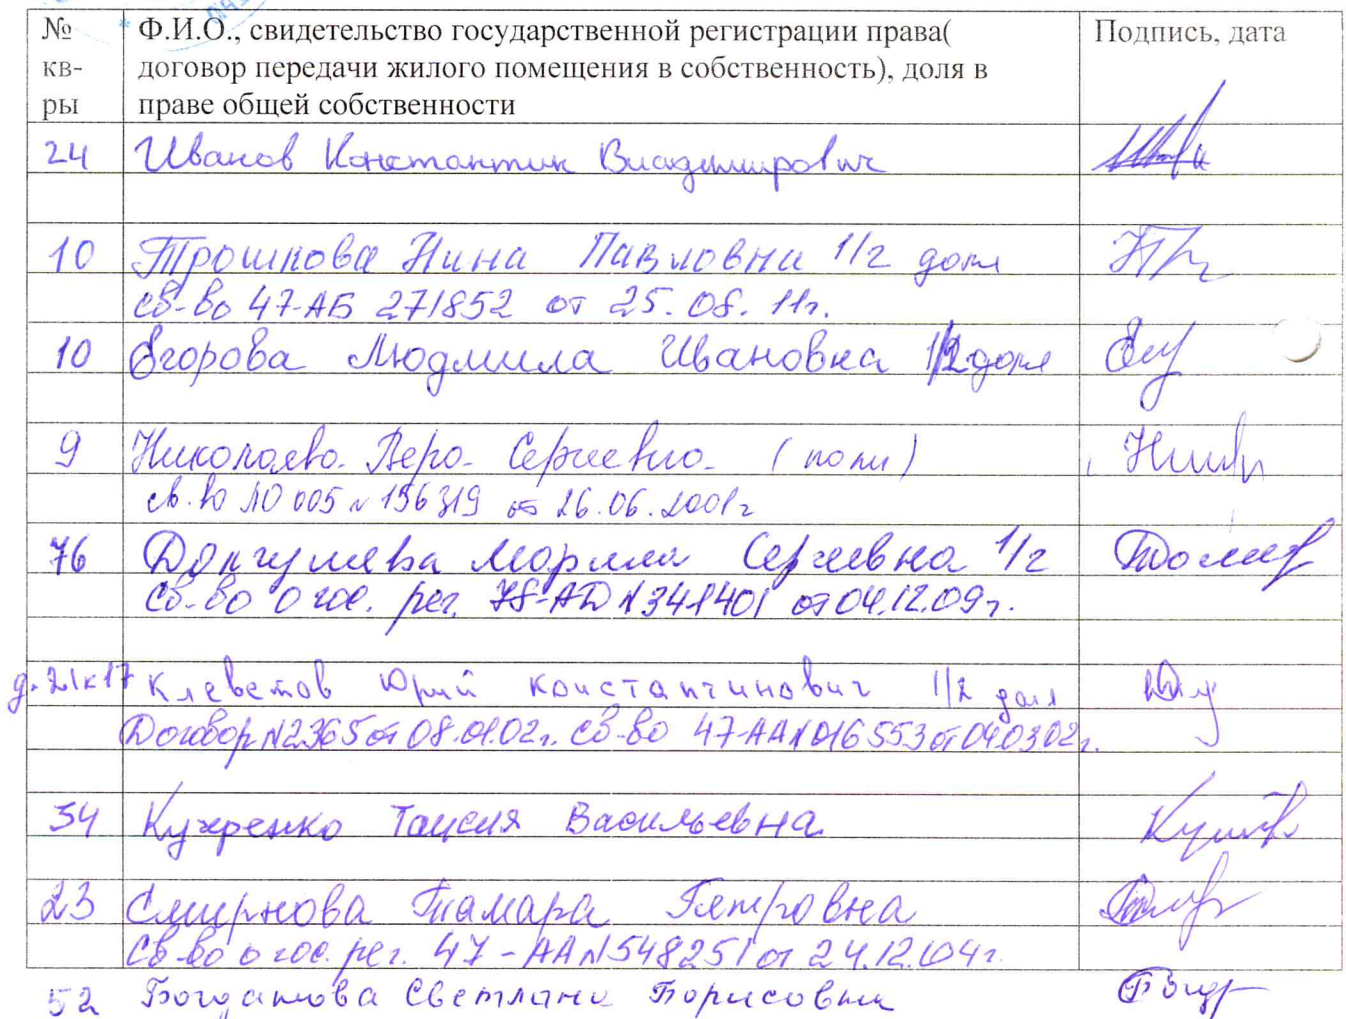 № кв-ры Ф.И.О., свидетельство государственной регистрации права( договор передачи жилого помещения в собственность), доля в праве общей собственности Подпись, дата
24 Иванов Константин Владимирович
10 Трошкова Нина Павловна 1/2 доля
св-во 47-АБ 271852 от 25.08.11г.
10 Егорова Людмила Ивановна 1/2 доля
9 Николаева Вера Сергеевна
св-во ЛО 005 № 196319 от 26.06.2001г
76 Сергеевна 1/2
Св-во о гос. рег. 78-АД №341401 от 04.12.09г.
д.21к17 Клеветов Юрий Константинович 1/2 доля
Договор №2365 от 08.01.02г. Св-во 47-АА №016553 от 04.03.02г.
54 Кучеренко Таисия Васильевна
23 Смирнова Тамара Петровна
Св-во о гос. рег. 47-АА №548251 от 24.12.04г.
52 Богданова Светлана Борисовна